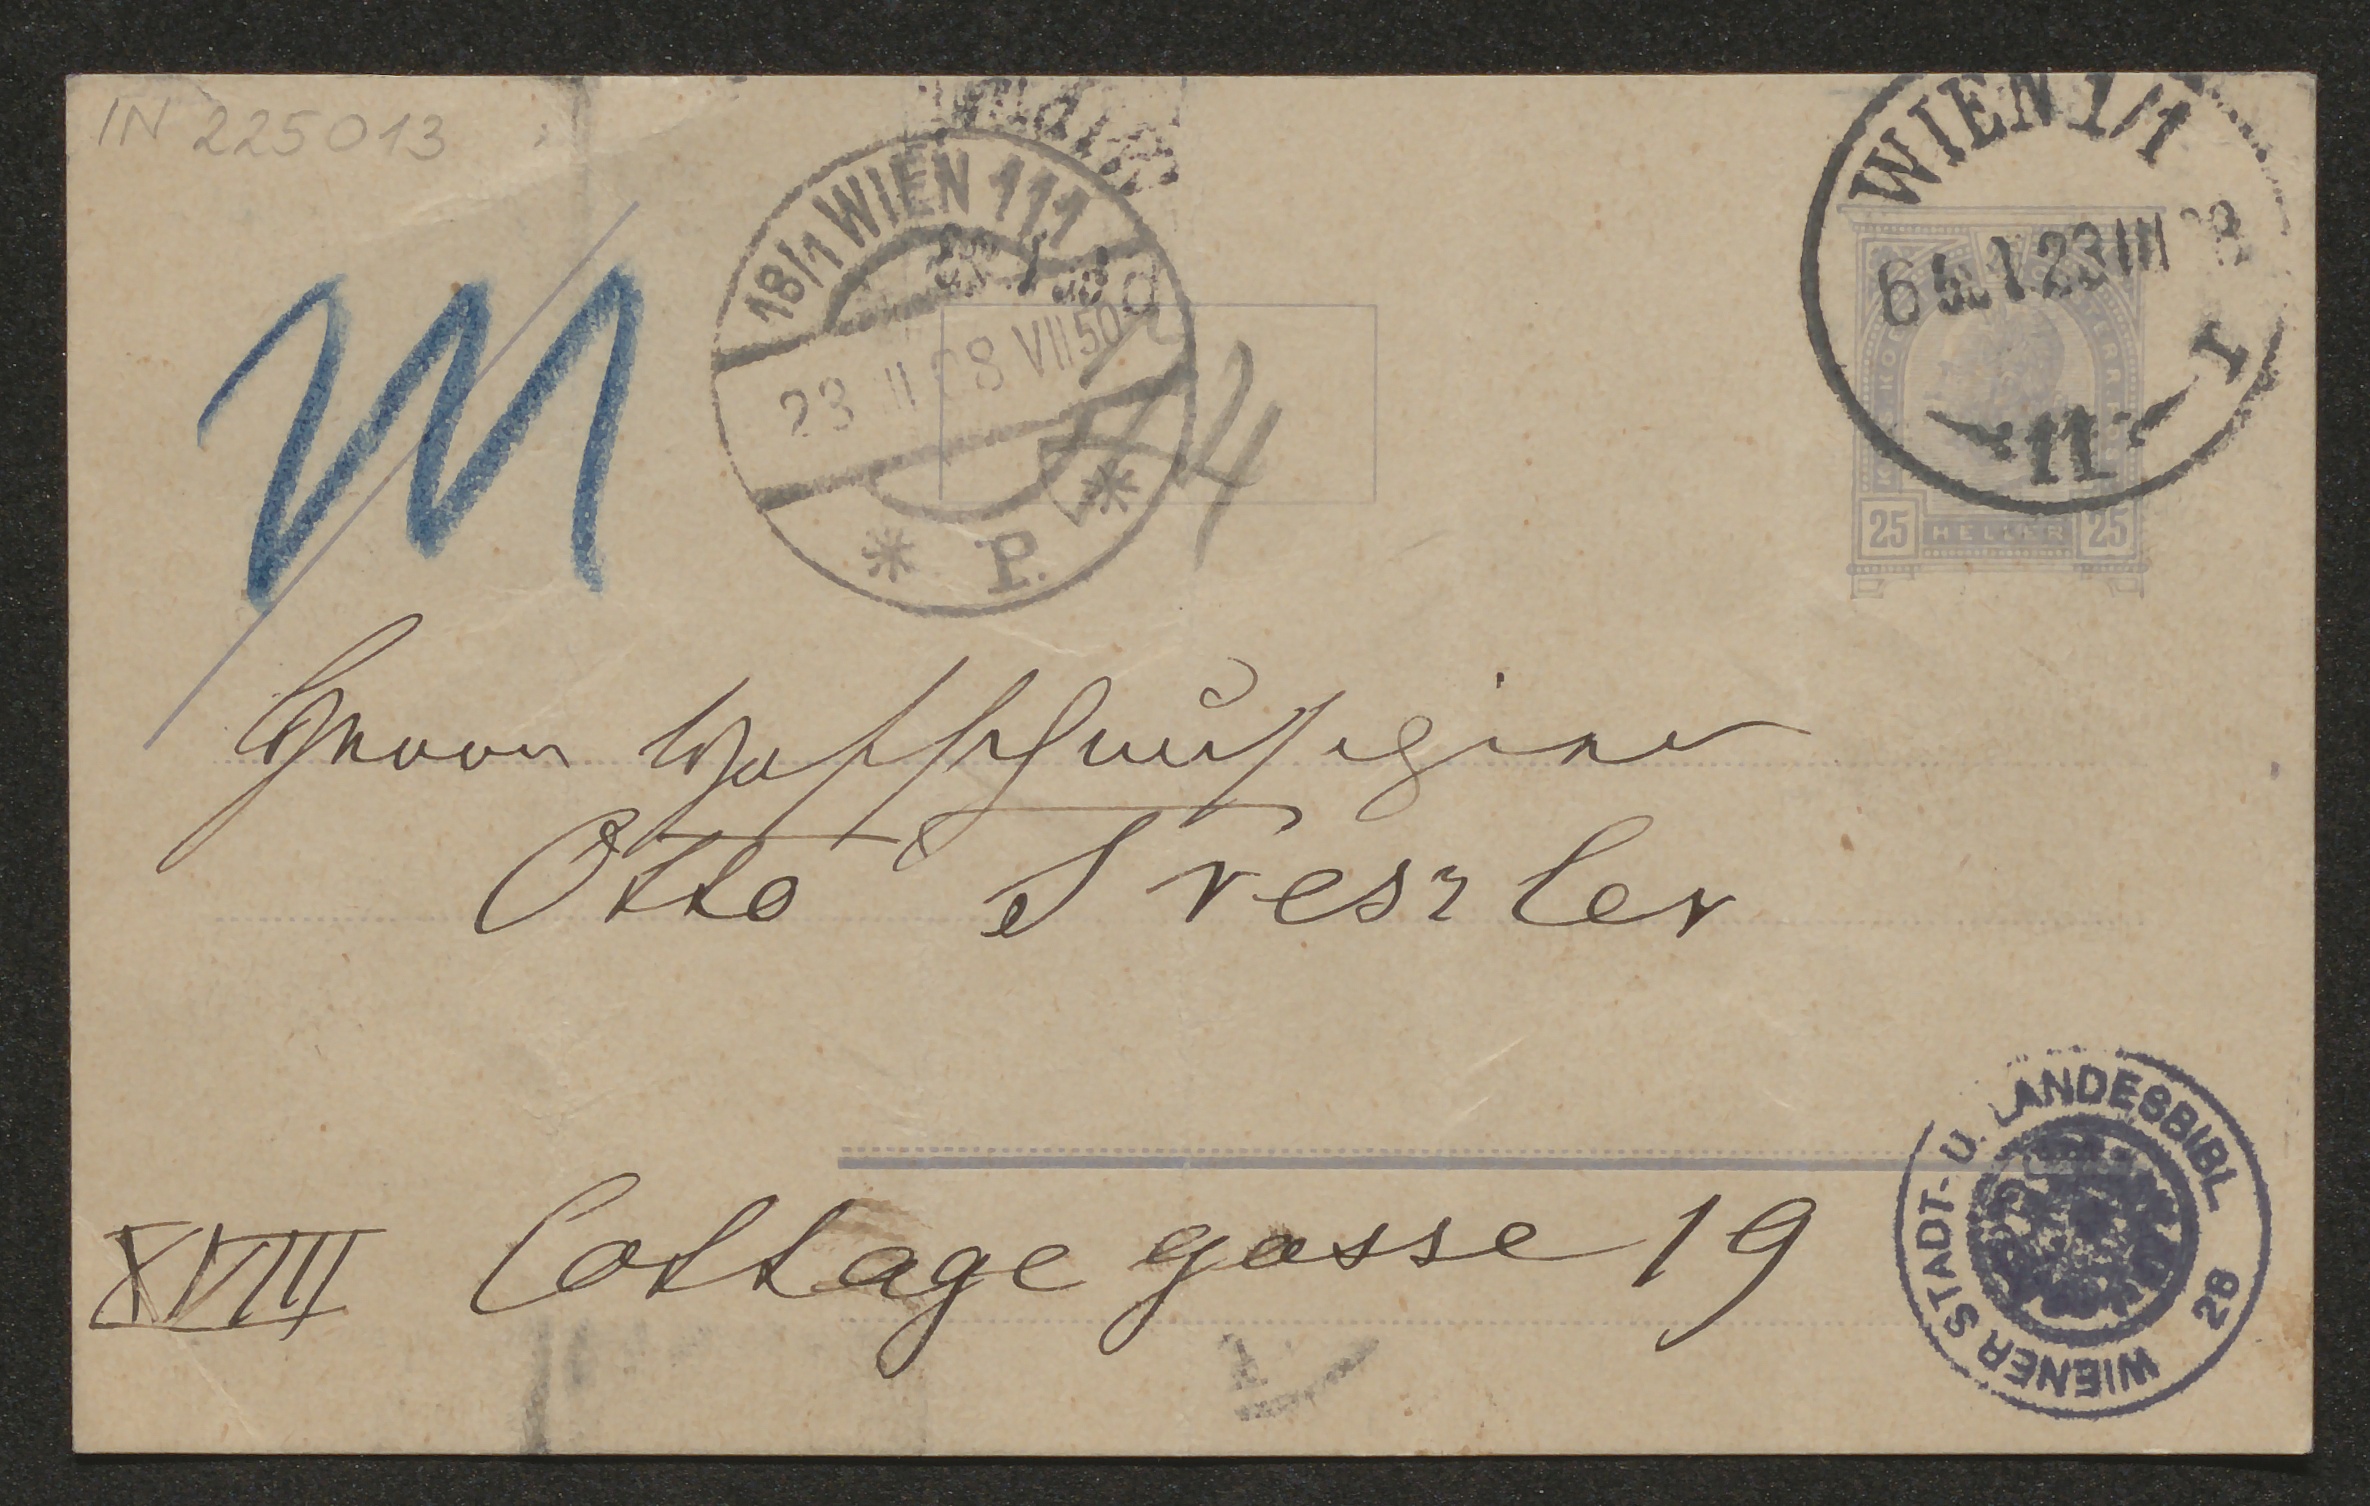 IN 225013
18/1 WIEN 111
23 III 08 VII50
* P. *
WIEN 1/1
23 III
11
25 HELLER 25
Herrn Hofschauspieler
Otto Treszler
XVIII Cottagegasse 19
WIENER STADT- U. LANDESBIBL. 28